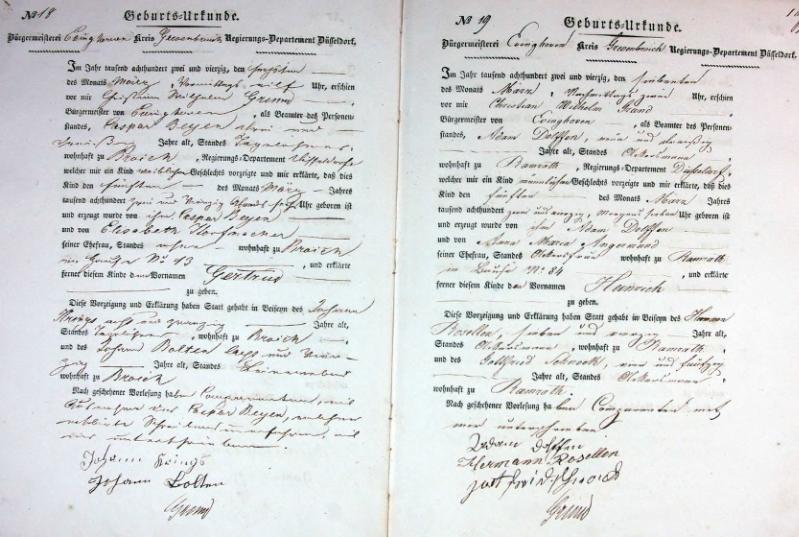 № 18
Geburts-Urkunde.
Bürgermeisterei Kreis Grevenbroich Regierungs-Departement Düsseldorf.
Im Jahr tausend achthundert zwei und vierzig, den
des Monats März, Vormittags elf Uhr, erschien
vor mir Christian Wilhelm
Bürgermeister von , als Beamter des Personen-
standes, Caspar Beyen drei und
dreißig Jahre alt, Standes Tagelöhner,
wohnhaft zu Broich, Regierungs-Departement Düsseldorf
welcher mir ein Kind weiblichen Geschlechts vorzeigte und mir erklärte, daß dies
Kind den fünften des Monats März Jahres
tausend achthundert zwei und vierzig Abends Uhr geboren ist
und erzeugt worden von ihm Caspar Beyen
und von Elisabeth
seiner Ehefrau, Standes ohne wohnhaft zu Broich
im Hause No 13, und erklärte
ferner diesem Kinde den Vornamen
Gertrud
zu geben.
Diese Vorzeigung und Erklärung haben Statt gehabt in Beiseyn des Johann
Krings und zwanzig Jahre alt,
Standes Tagelöhner, wohnhaft zu Broich
und des Johann Bolten sechs und vier-
zig Jahre alt, Standes Leineweber
wohnhaft zu Broich
Nach geschehener Vorlesung haben Comparenten, mit
Ausnahme des Caspar Beyen, welcher
erklärte Schreibens unerfahren, mit
mir unterschrieben.
Johann Krings
Johann Bolten
№ 19
Geburts-Urkunde.
Bürgermeisterei Kreis Grevenbroich Regierungs-Departement Düsseldorf.
Im Jahr tausend achthundert zwei und vierzig, den siebenten
des Monats März, Nachmittags zwei Uhr, erschien
vor mir Christian Wilhelm
Bürgermeister von , als Beamter des Personen-
standes, Adam Dolffen, neun und dreißig
Jahre alt, Standes Ackersmann,
wohnhaft zu Ramrath, Regierungs-Departement Düsseldorf,
welcher mir ein Kind männlichen Geschlechts vorzeigte und mir erklärte, daß dies
Kind den fünften des Monats März Jahrs
tausend achthundert zwei und vierzig, Morgens sieben Uhr geboren ist
und erzeugt worden von ihm Adam Dolffen
und von Anna Maria Angermund
seiner Ehefrau, Standes wohnhaft zu Ramrath
im Hause No 84, und erklärte
ferner diesem Kinde den Vornamen
Heinrich
zu geben.
Diese Vorzeigung und Erklärung haben Statt gehabt in Beiseyn des Hermann
Rosellen, sieben und vierzig Jahre alt,
Standes Ackersmann, wohnhaft zu Ramrath,
und des Gottfried , vier und fünfzig
Jahre alt, Standes Ackersmann,
wohnhaft zu Ramrath.
Nach geschehener Vorlesung haben Comparenten mit
mir unterschrieben
Adam Dolffen
Hermann Rosellen